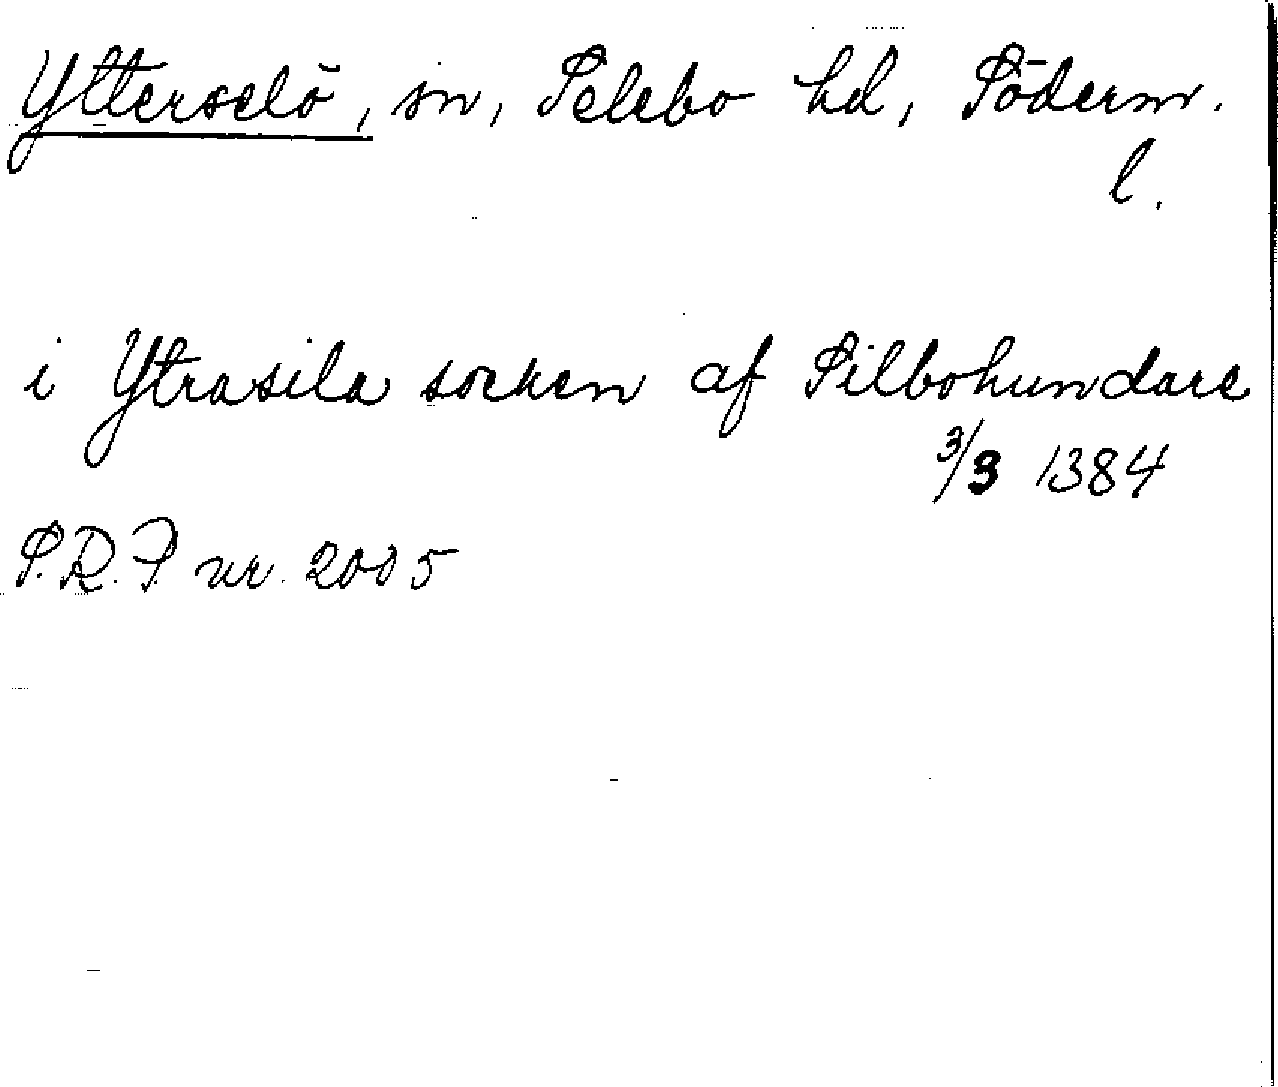 Ytterselö, sn, Selebo hd, Söderm.
l.
i Ytrasila socken af Silbohundare
3/3 1384
S.R.P. nr. 2005